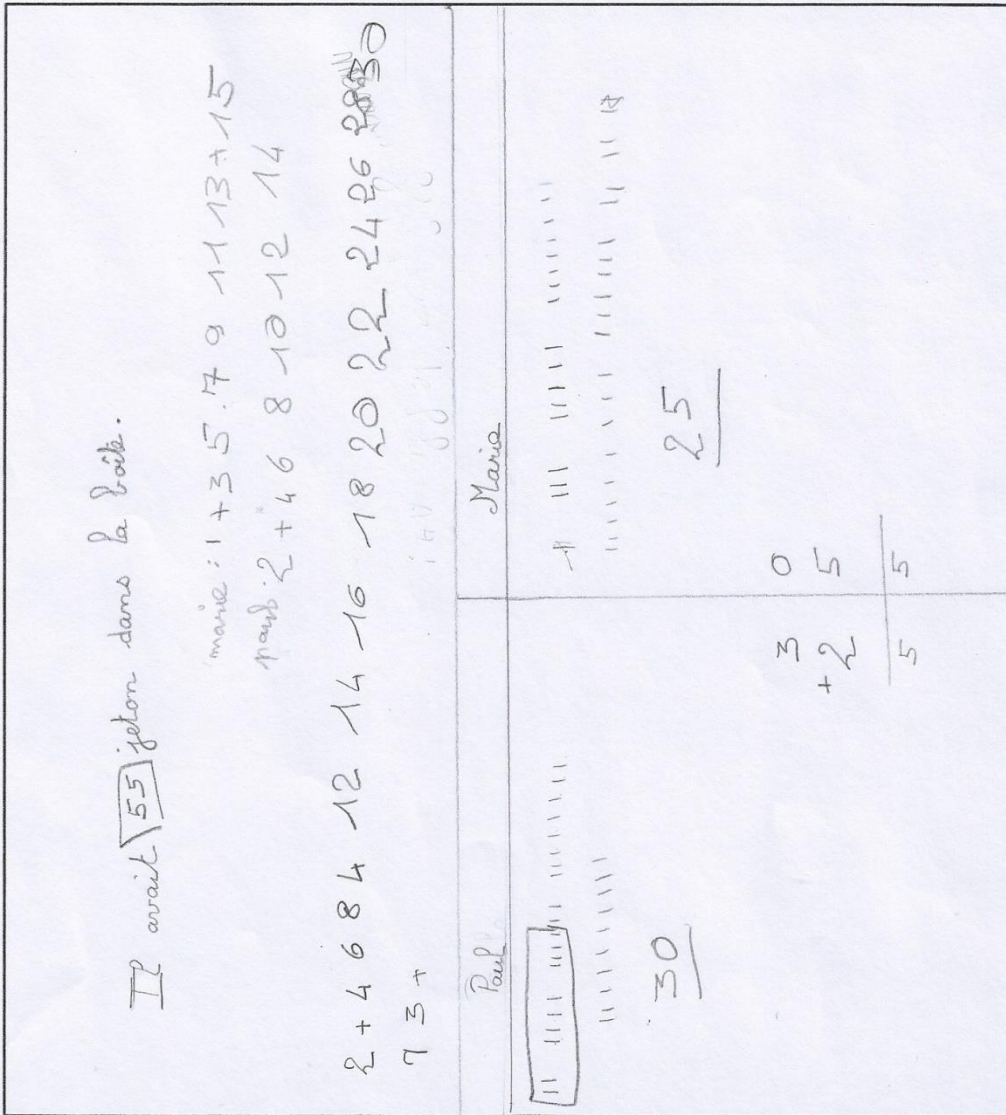 Il avait 55 jeton dans la boîte.
marie : 1 + 3 5 . 7 9 11 13 + 15
paul : 2 + 4 6 8 10 12 14
2 + 4 6 8 4 12 14 16 18 20 22 24 26 28 30
7 3 +
Paul
Marie
30
25
3 0
+ 2 5
5 5